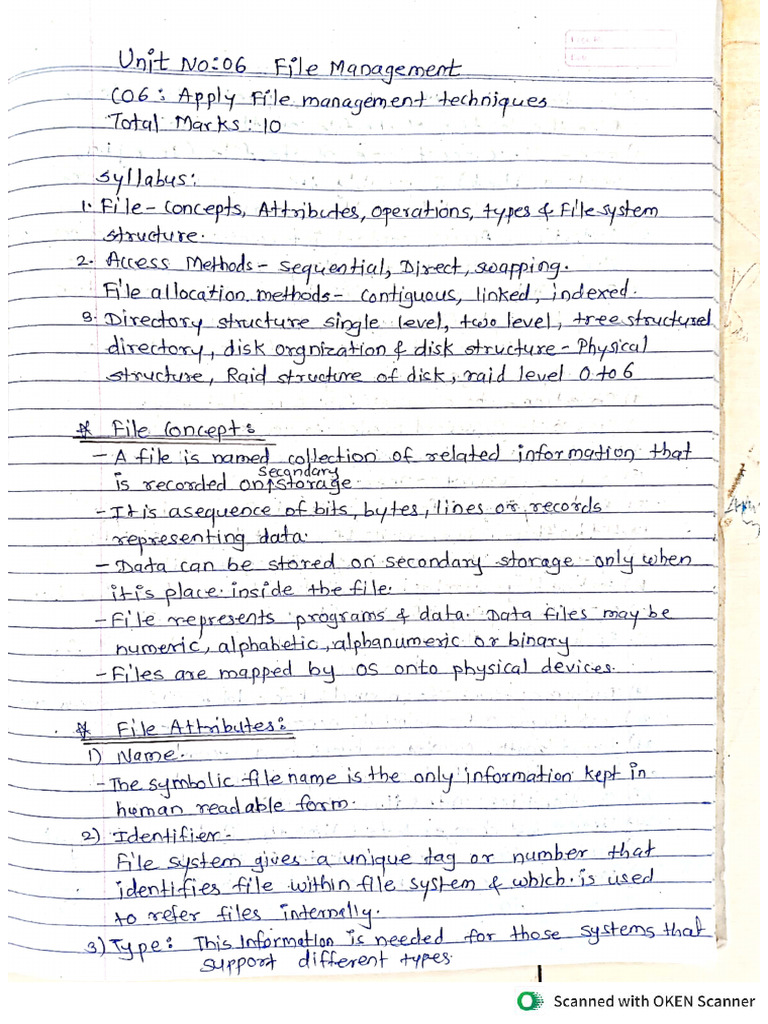 Unit No:06 File Management
CO6: Apply File management techniques
Total Marks: 10
Syllabus:
1. File - Concepts, Attributes, Operations, types & File system
structure.
2. Access Methods - sequential, Direct, swapping.
File allocation methods - contiguous, linked, indexed.
3. Directory structure single level, two level, tree structured
directory, disk orgnization & disk structure - Physical
structure, Raid structure of disk, raid level 0 to 6
* File Concept:
- A file is named collection of related information that
is recorded on secondary storage.
- It is asequence of bits, bytes, lines or records
representing data.
- Data can be stored on secondary storage only when
it is place inside the file.
- File represents programs & data. Data files may be
numeric, alphabetic, alphanumeric or binary
- Files are mapped by OS onto physical devices.
* File Attributes:
1) Name.
- The symbolic file name is the only information kept in
human readable form.
2) Identifier -
File system gives a unique tag or number that
identifies file within file system & which is used
to refer files internally.
3) Type: This Information is needed for those systems that
support different types.
Scanned with OKEN Scanner